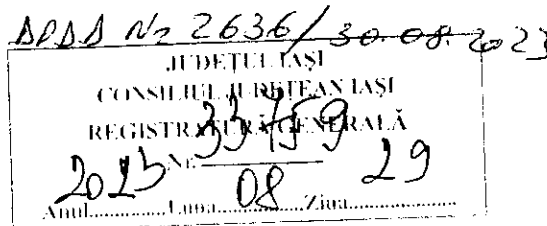 DPDD Nr 2636/30.08.2023
JUDEȚUL IAȘI
CONSILIUL JUDEȚEAN IAȘI
REGISTRATURĂ GENERALĂ
Nr. 33759
Anul 2023 Luna 08 Ziua 29